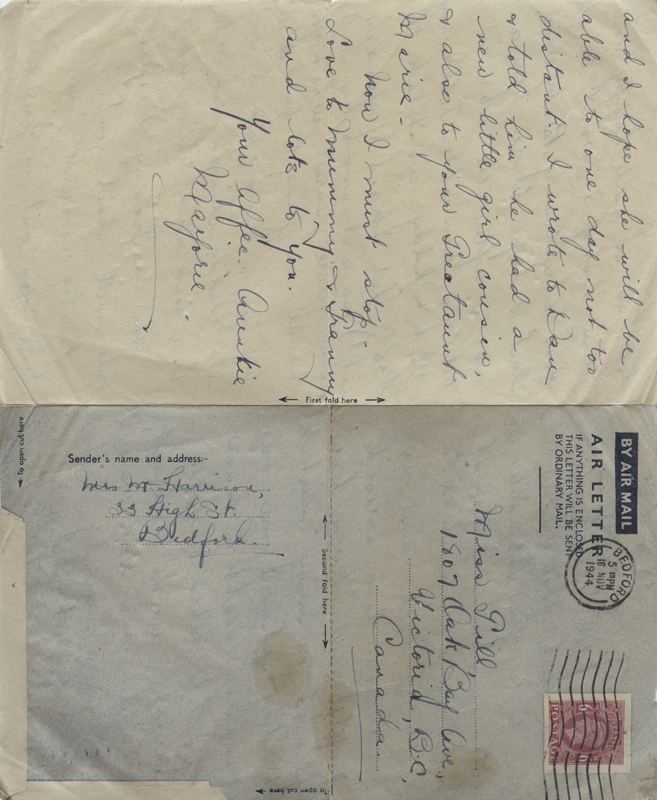 and I hope she will be
able to one day not too
distant. I wrote to Dan
& told him he had a
new little girl cousin,
& also to your Greataunt
Marie -
Now I must stop -
Love to Mummy & Granny
and lots to you.
Your affec. Auntie
Marjorie
First fold here
To open cut here
Sender's name and address:-
Mrs M Harrison,
33 High St.
Bedford.
Second fold here
To open cut here
BY AIR MAIL
AIR LETTER
IF ANYTHING IS ENCLOSED
THIS LETTER WILL BE SENT
BY ORDINARY MAIL.
BEDFORD
16 NOV
1944
POSTAGE
Miss Gill,
1807 Oak Bay Ave.,
Victoria, B.C,
Canada.